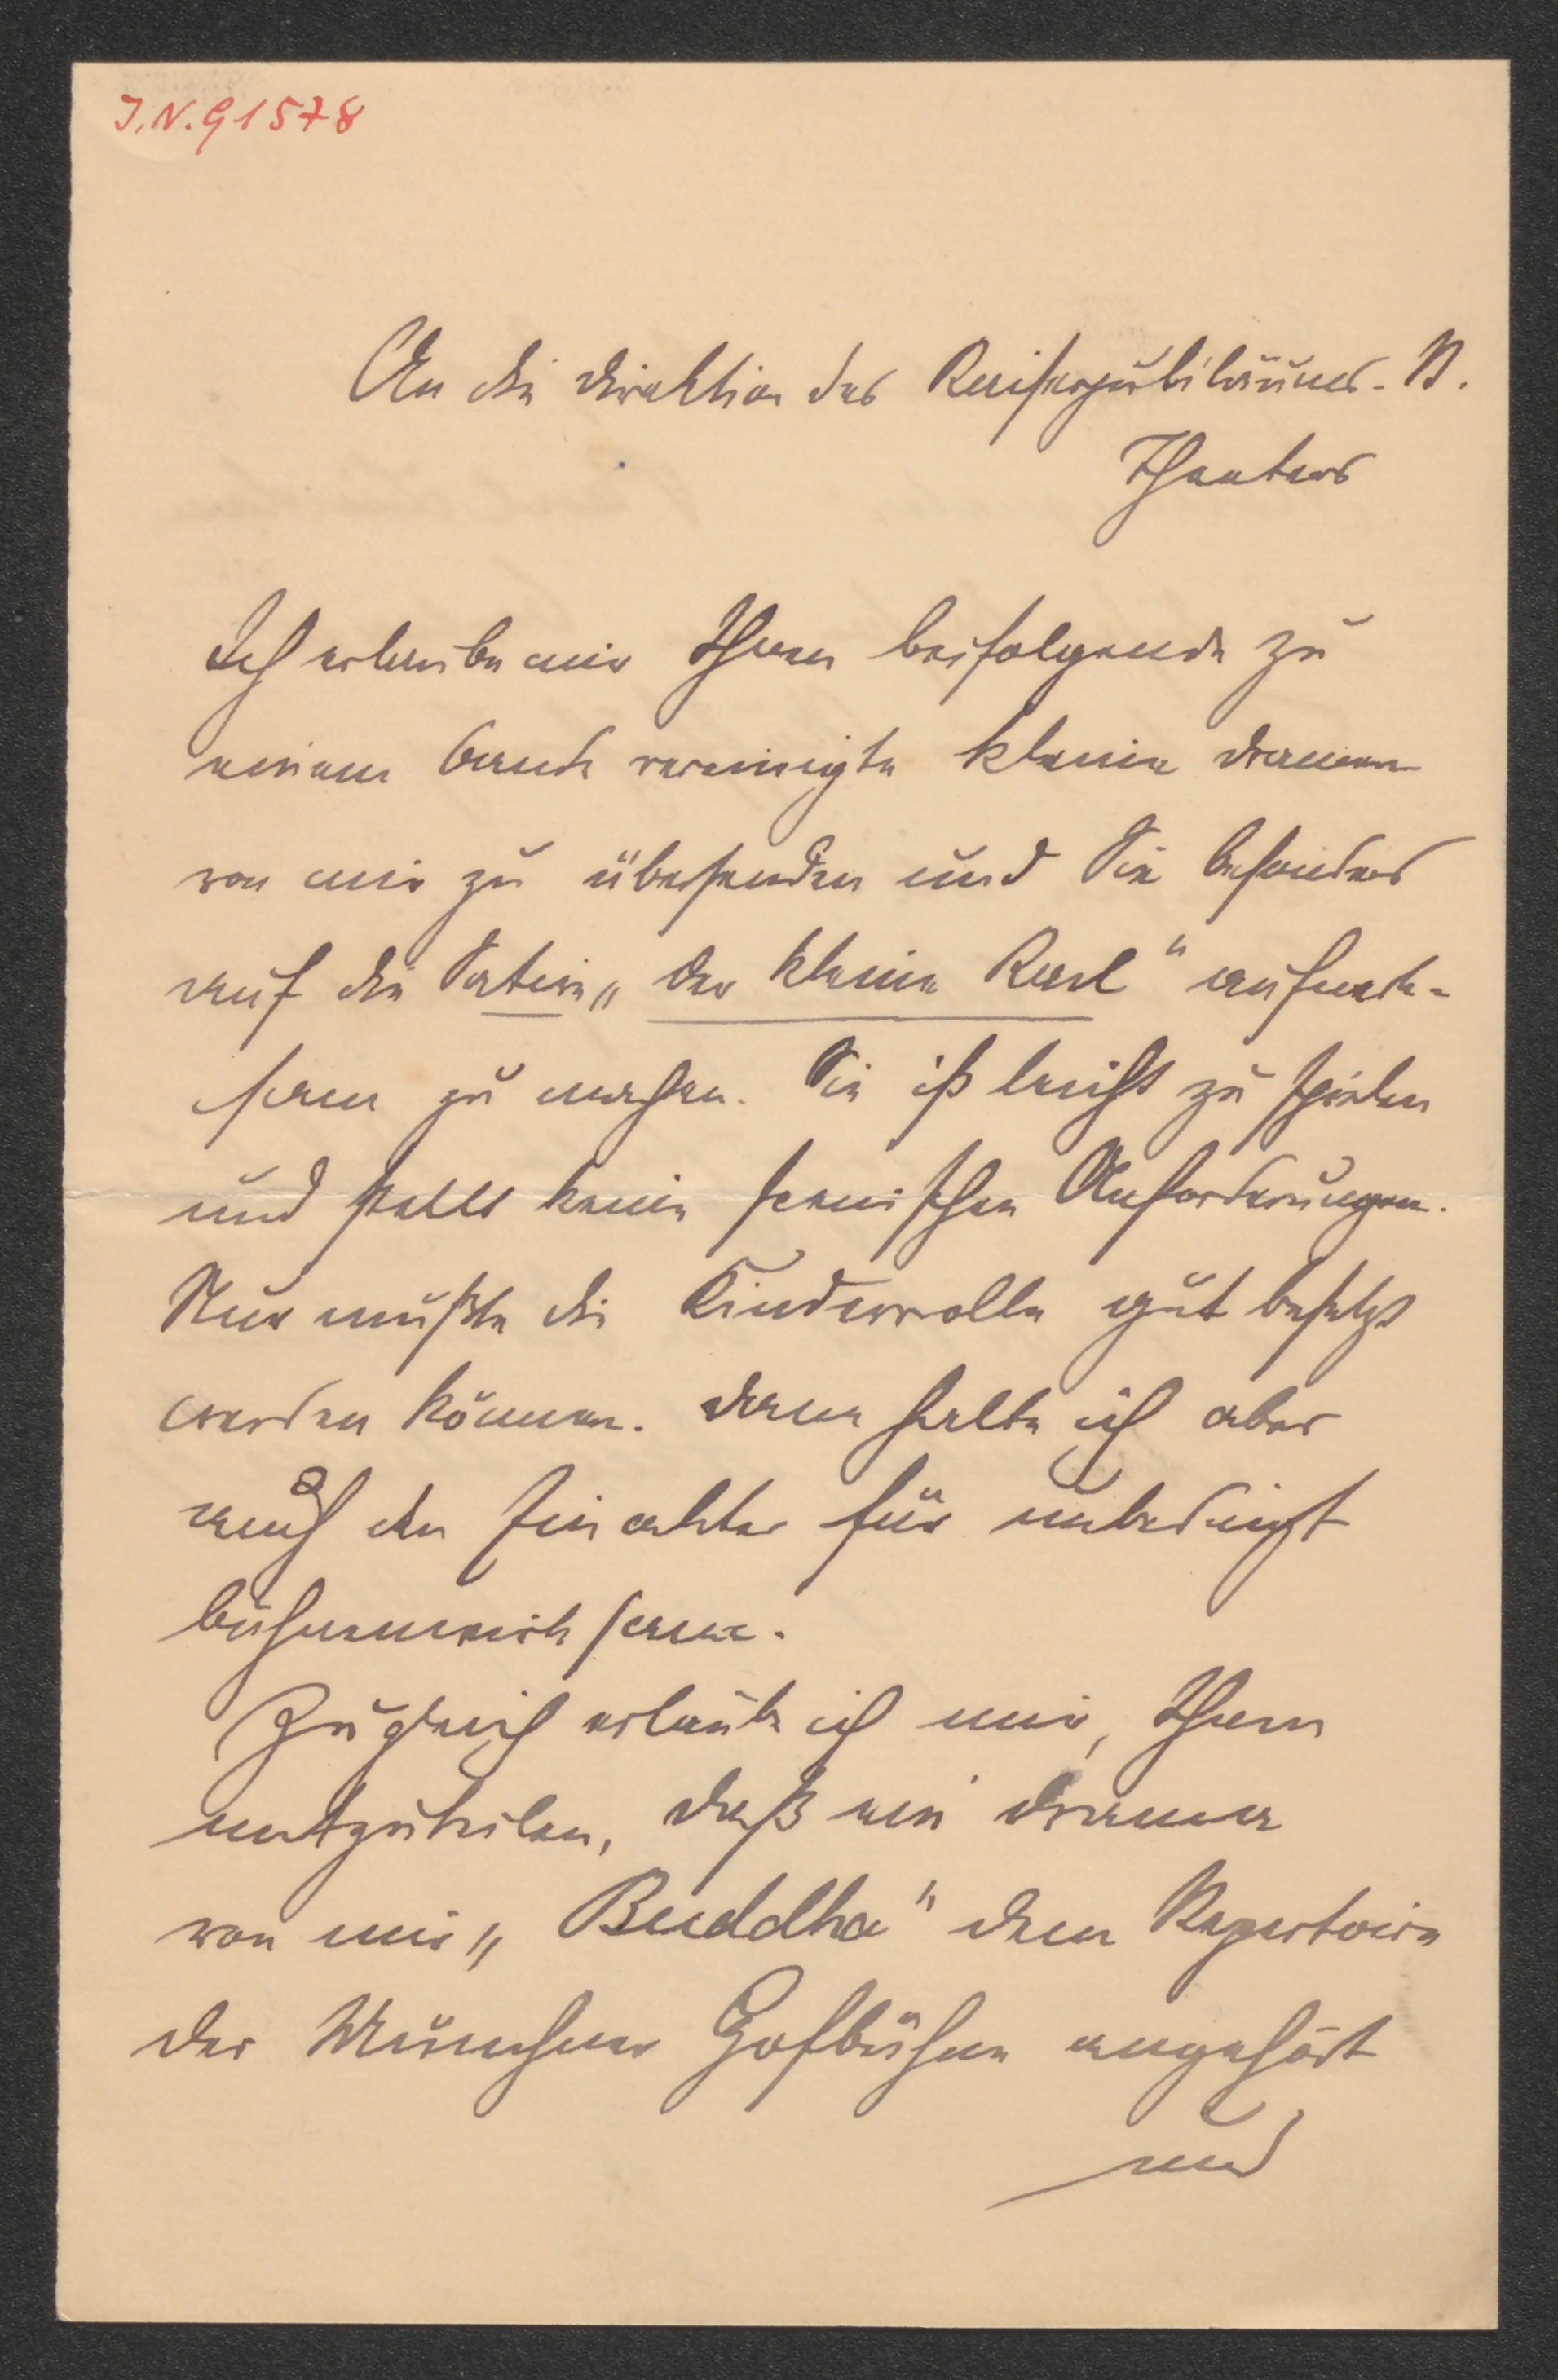 J.N. 91578
An die Direktion des Kaiserjubiläums-St.
Theaters
Ich erlaube mir Ihnen beifolgende zu
einem Bande vereinigte kleine Dramen
von mir zu übersenden und Sie besonders
auf die Satire „Der kleine Karl“ aufmerk-
sam zu machen. Sie ist leicht zu spielen
und stellt keine scenischen Anforderungen.
Nur müßte die Kinderrolle gut besetzt
werden können. Dann halte ich aber
auch den Einakter für unbedingt
bühnenwirksam.
Zugleich erlaube ich mir, Ihnen
mitzuteilen, daß ein Drama
von mir „Buddha“ dem Repertoire
der Münchner Hofbühne angehört
und